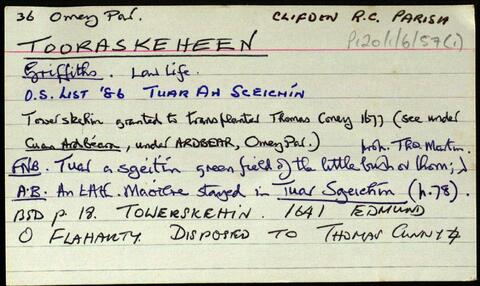 36 Omey Par. CLIFDEN R.C. PARISH
P120/1/6/57(i)
TOORASKEHEEN
Griffiths. Law Life.
O.S. LIST '86 TUAR AN SCEICHÍN
Towerskehin granted to transplanter Thomas Coney 1677 (see under
Cuan Ardbéara, under ARDBEAR, Omey Par.) prob. TRA Martin.
FNB. Tuar a sgeitín green field of the little bush or thorn;
A.B. An tAth. Maoilre stayed in Tuar Sgeichin (p.78).
BSD p. 18. TOWERSKEHIN. 1641 EDMUND
O FLAHARTY. DISPOSED TO THOMAS CUNNY